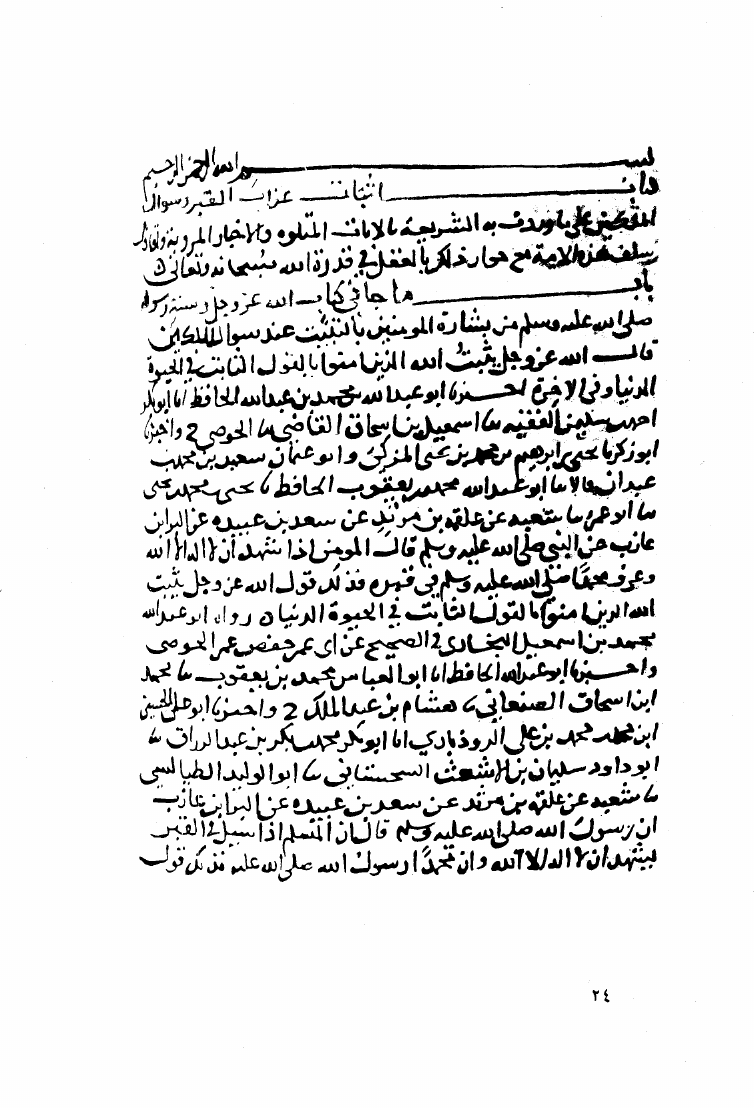 بسم الله الرحمن الرحيم
باب اثبات عذاب القبر وسوال
الملكين على ما وردت به الشريعة بالايات المتلوه والاخبار المرويه
سلف هذه الامة مع جواز ذلك بالعقل في قدرة الله سبحانه وتعالى
باب ما جا في كتاب الله عز وجل وسنة رسوله
صلى الله عليه وسلم من بشارة المومنين بالتثبيت عند سوال الملكين
قال الله عز وجل يثبت الله الذين امنوا بالقول الثابت في الحيوة
الدنيا وفي الاخرة اخبرنا ابو عبد الله محمد بن عبد الله الحافظ انا ابو بكر
احمد بن سلمن الفقيه نا اسمعيل بن اسحاق القاضي نا الحوضي ح واخبرنا
ابو زكريا يحيى بن ابرهيم بن محمد بن يحيى المزكي وابو عثمان سعيد بن محمد بن
عبدان قالا نا ابو عبد الله محمد بن يعقوب الحافظ نا يحيى بن محمد بن يحيى
نا ابو عمر نا شعبه عن علقمه بن مرثد عن سعد بن عبيده عن البرا بن
عازب عن النبي صلى الله عليه وسلم قال المومن اذا شهد ان لا اله الا الله
وعرف محمدا صلى الله عليه وسلم في قبره فذلك قول الله عز وجل يثبت
الله الذين امنوا بالقول الثابت في الحيوة الدنيا ه رواه ابو عبد الله
محمد بن اسمعيل البخاري في الصحيح عن ابي عمر حفص بن عمر الحوضي
واخبرنا ابو عبد الله الحافظ انا ابو العباس محمد بن يعقوب نا محمد
ابن اسحاق الصنعاني نا هشام بن عبد الملك ح واخبرنا ابو علي الحسين
ابن محمد بن محمد بن علي الروذباري انا ابو بكر محمد بن بكر بن عبد الرزاق نا
ابو داود سليمان بن الاشعث السجستاني نا ابو الوليد الطيالسي
نا شعبه عن علقمه بن مرثد عن سعد بن عبيده عن البرا بن عازب
ان رسول الله صلى الله عليه وسلم قال ان المسلم اذا سيل في القبر
فيشهد ان لا اله الا الله وان محمدا رسول الله صلى الله عليه فذلك قول
٢٤